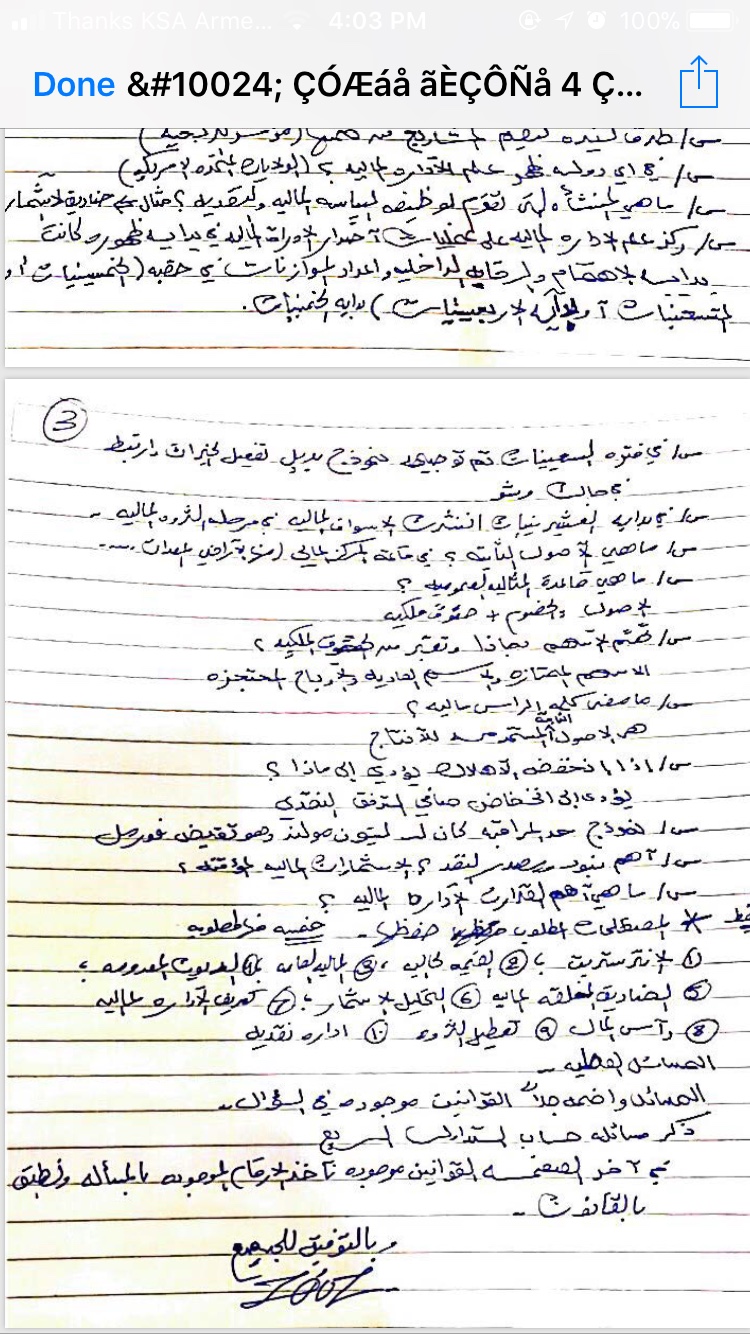 Thanks KSA Arme... 4:03 PM 100%
Done &#10024; ÇÓÆáå ãÈÇÔÑå 4 Ç...
س/ في اي دوله ظهر علم الاداره الماليه ؟ (الولايات المتحده الامريكيه)
س/ ماهي المنشأه التي تقوم لوظيفه السياسه الماليه والنقديه ؟ مثال صناديق لاستثمار
س/ ركز علم الاداره الماليه على عمليات اصدار الاوراق الماليه في بدايه ظهوره كانت
بدايه الاهتمام والرقابه الداخليه واعداد الموازنات في حقبه (الخمسينيات او
التسعينات أو الاربعينيات) بدايه الخمسينيات.
3
س/ في فتره السبعينات تم توجيه نموذج بديل تفعيل الخيرات وارتبط
في جالت وشو
س/ في بدايه العشرينيات انتشرت الاسواق الماليه في مرحله الثروه الماليه -
س/ ماهي الاصول الثابته ؟ في قائمة المركز المالي (منها اراضي المعدات ....
س/ ماهي قاعدة المثاليه لعموميه ؟
الاصول = الخصوم + حقوق ملكيه
س/ تهتم الاسهم بماذا وتعتبر من حقوق الملكيه ؟
الاسهم الممتازه والاسهم العاديه والارباح المحتجزه
س/ مامعنى كلمه الراس ماليه ؟
هي الاصول الثابتة المستخدمه للانتاج
س/ اذا انخفضه الاهلاك يؤدي إلى ماذا ؟
يؤدى إلى انخفاض صافي التدفق النقدي
س/ نموذج حد المراقبه كان لـ ليتون مولند وهو تقيض فورمل
س/ أهم بنود رصد النقد ؟ الاستثمارات الماليه المؤقته ؟
س/ ماهي أهم القرارت الاداره الماليه ؟
* المصطلحات المطلوب حفظها - خمسه فالمطلوبه
① الانترستريت ؛ ② القيمه الحاليه ، ③ الماليه العامه ④ الديون المعدومه ؛
⑤ الصناديق المغلقه الماليه ⑥ التحليل الاستثمار ؛ ⑦ تعريف الاداره الماليه
⑧ رأس المال ⑨ تعظيم الثروه ⑩ اداره نقديه
المسائل الفعليه -
المسائل واضحه جداً القوانين موجوده في السؤال -
ذكر مسائله حساب التداول السريع
في آخر الصفحه القوانين موجوده تأخذ الارقام الموجوده بالمسأله وتطبق
بالقانون -
وبالتوفيق للجميع